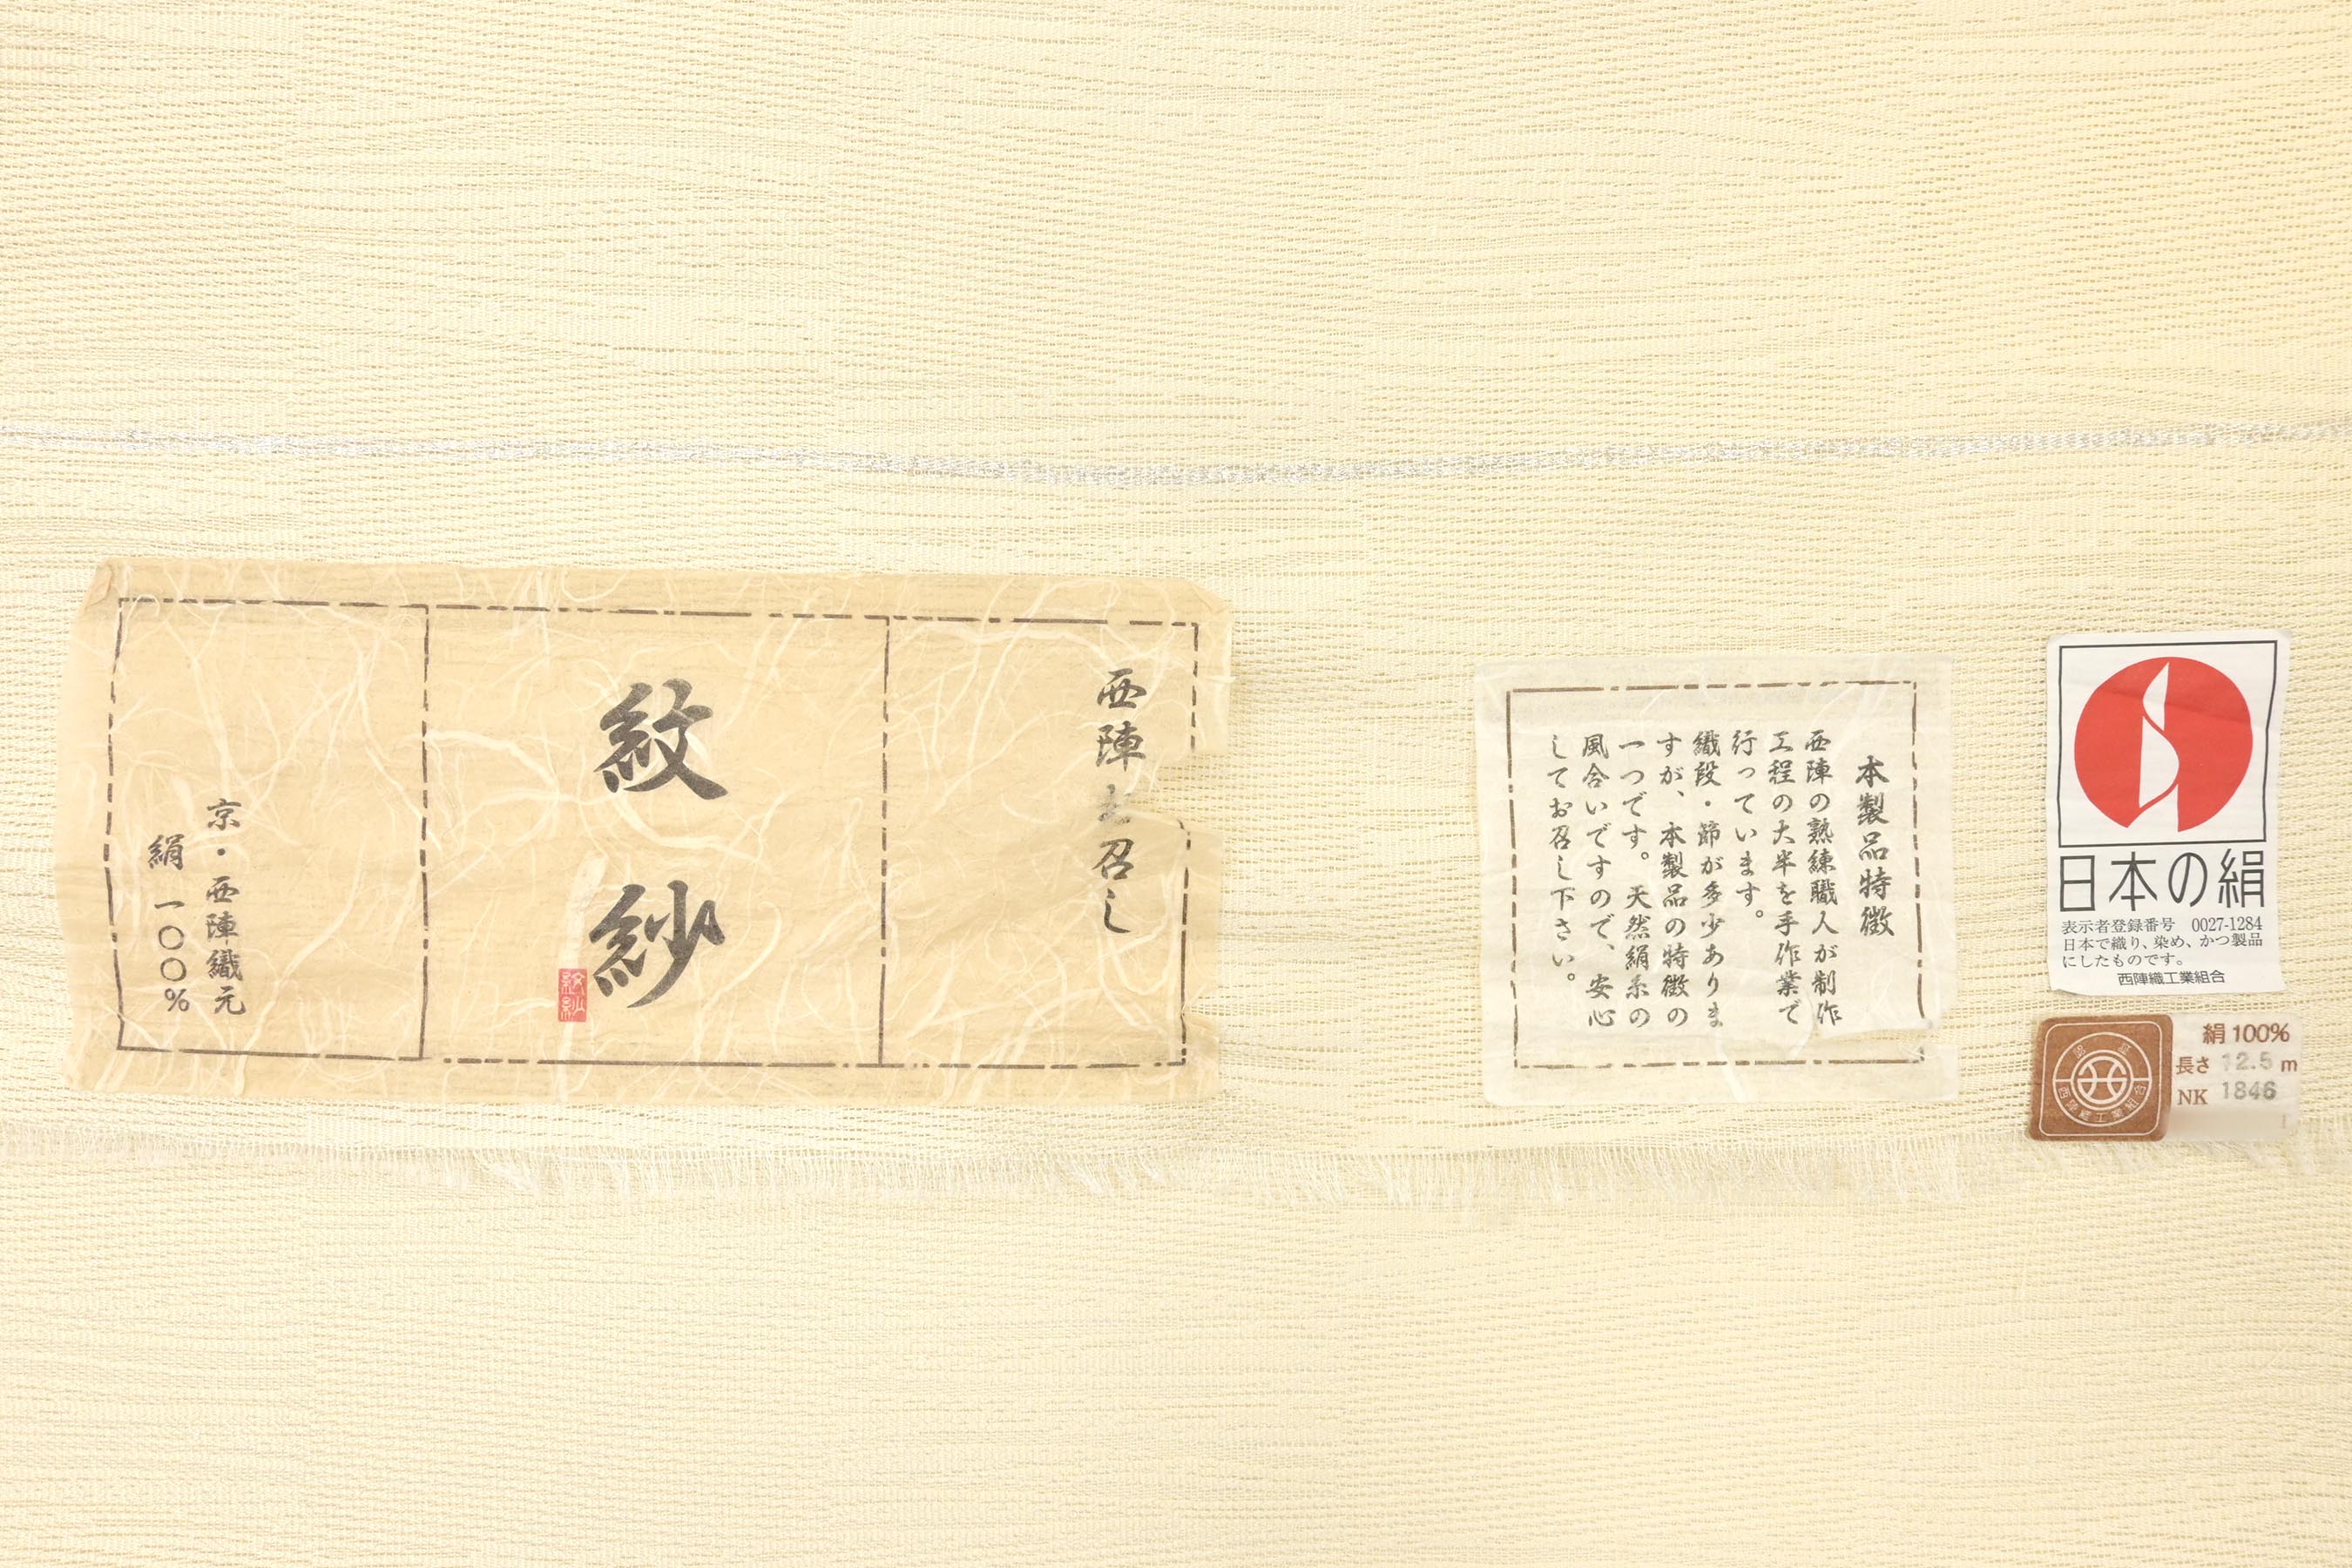 西陣お召し
紋紗
紋紗
京・西陣織元
絹 一〇〇%
本製品特徴
西陣の熟練職人が制作
工程の大半を手作業で
行っています。
織段・節が多少ありま
すが、本製品の特徴の
一つです。天然絹糸の
風合いですので、安心
してお召し下さい。
日本の絹
表示者登録番号 0027-1284
日本で織り、染め、かつ製品
にしたものです。
西陣織工業組合
西陣織工業組合
絹 100%
長さ 12.5 m
NK 1846